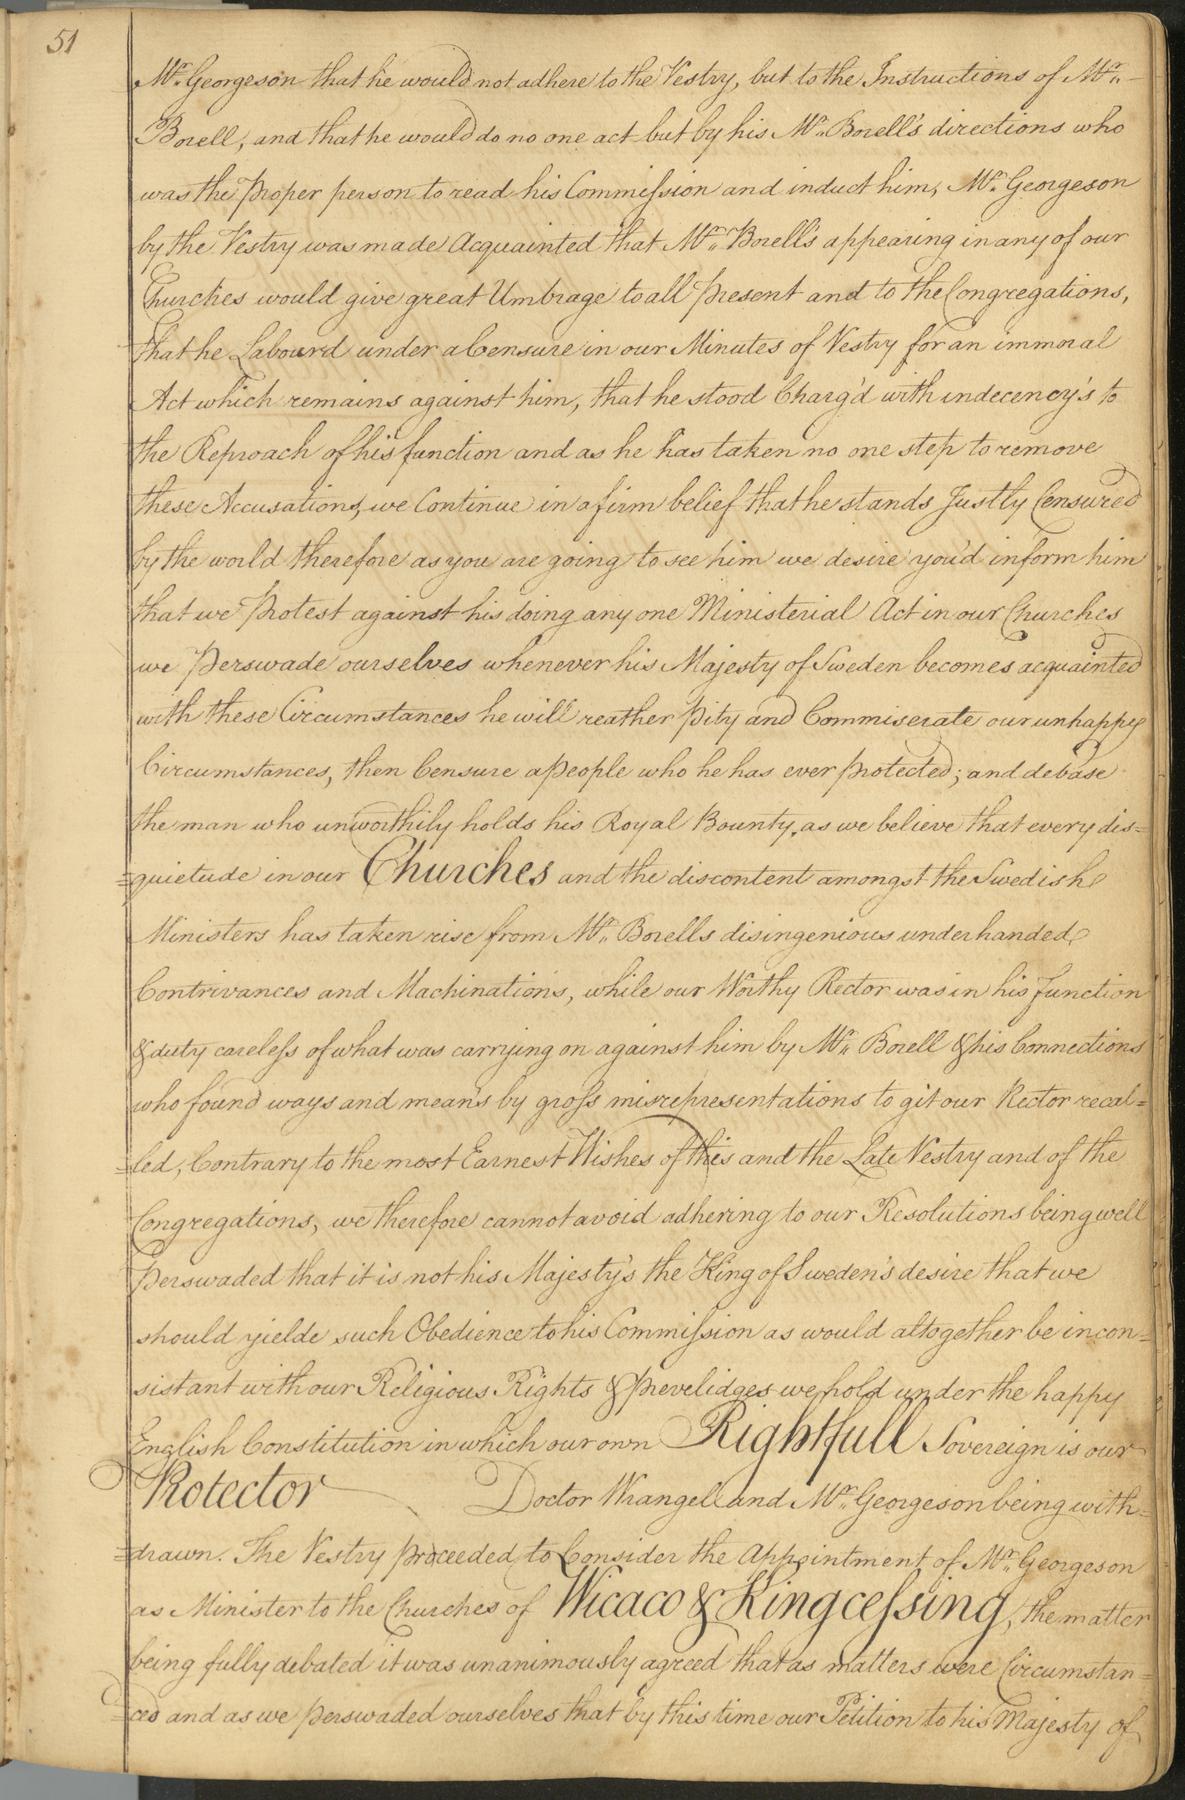 51
Mr. Georgeson that he would not adhere to the Vestry, but to the Instructions of Mr.
Borell, and that he would do no one act but by his Mr. Borell's directions who
was the Proper person to read his Commission and induct him, Mr. Georgeson
by the Vestry was made Acquainted that Mr. Borell's appearing in any of our
Churches would give great Umbrage to all Present and to the Congregations,
that he Labourd under a Censure in our Minutes of Vestry for an immoral
Act which remains against him, that he stood Charg'd with indecency's to
the Reproach of his function and as he has taken no one step to remove
these Accusations, we Continue in a firm belief that he stands Justly Censured
by the world therefore as you are going to see him we desire you'd inform him
that we Protest against his doing any one Ministerial Act in our Churches
we Perswade ourselves whenever his Majesty of Sweden becomes acquainted
with these Circumstances he will reather Pity and Commiserate our unhappy
Circumstances, then Censure a People who he has ever protected; and debase
the man who unworthily holds his Royal Bounty, as we believe that every dis=
=quietude in our Churches and the discontent amongst the Swedish
Ministers has taken rise from Mr. Borells disingenious underhanded
Contrivances and Machinations, while our Worthy Rector was in his function
& duty careless of what was carrying on against him by Mr. Borell & his Connections
who found ways and means by gross misrepresentations to git our Rector recal=
=led, Contrary to the most Earnest Wishes of this and the Late Vestry and of the
Congregations, we therefore cannot avoid adhering to our Resolutions being well
Perswaded that it is not his Majesty's the King of Sweden's desire that we
should yielde such Obedience to his Commission as would altogether be incon=
sistant with our Religious Rights & Prevelidges we hold under the happy
English Constitution in which our own Rightfull Sovereign is our
Protector Doctor Wrangel and Mr. Georgeson being with=
=drawn. The Vestry proceeded to Consider the Appointment of Mr. Georgeson
as Minister to the Churches of Wicaco & Kingcessing, the matter
being fully debated it was unanimously agreed that as matters were Circumstan=
=ced and as we perswaded ourselves that by this time our Petition to his Majesty of